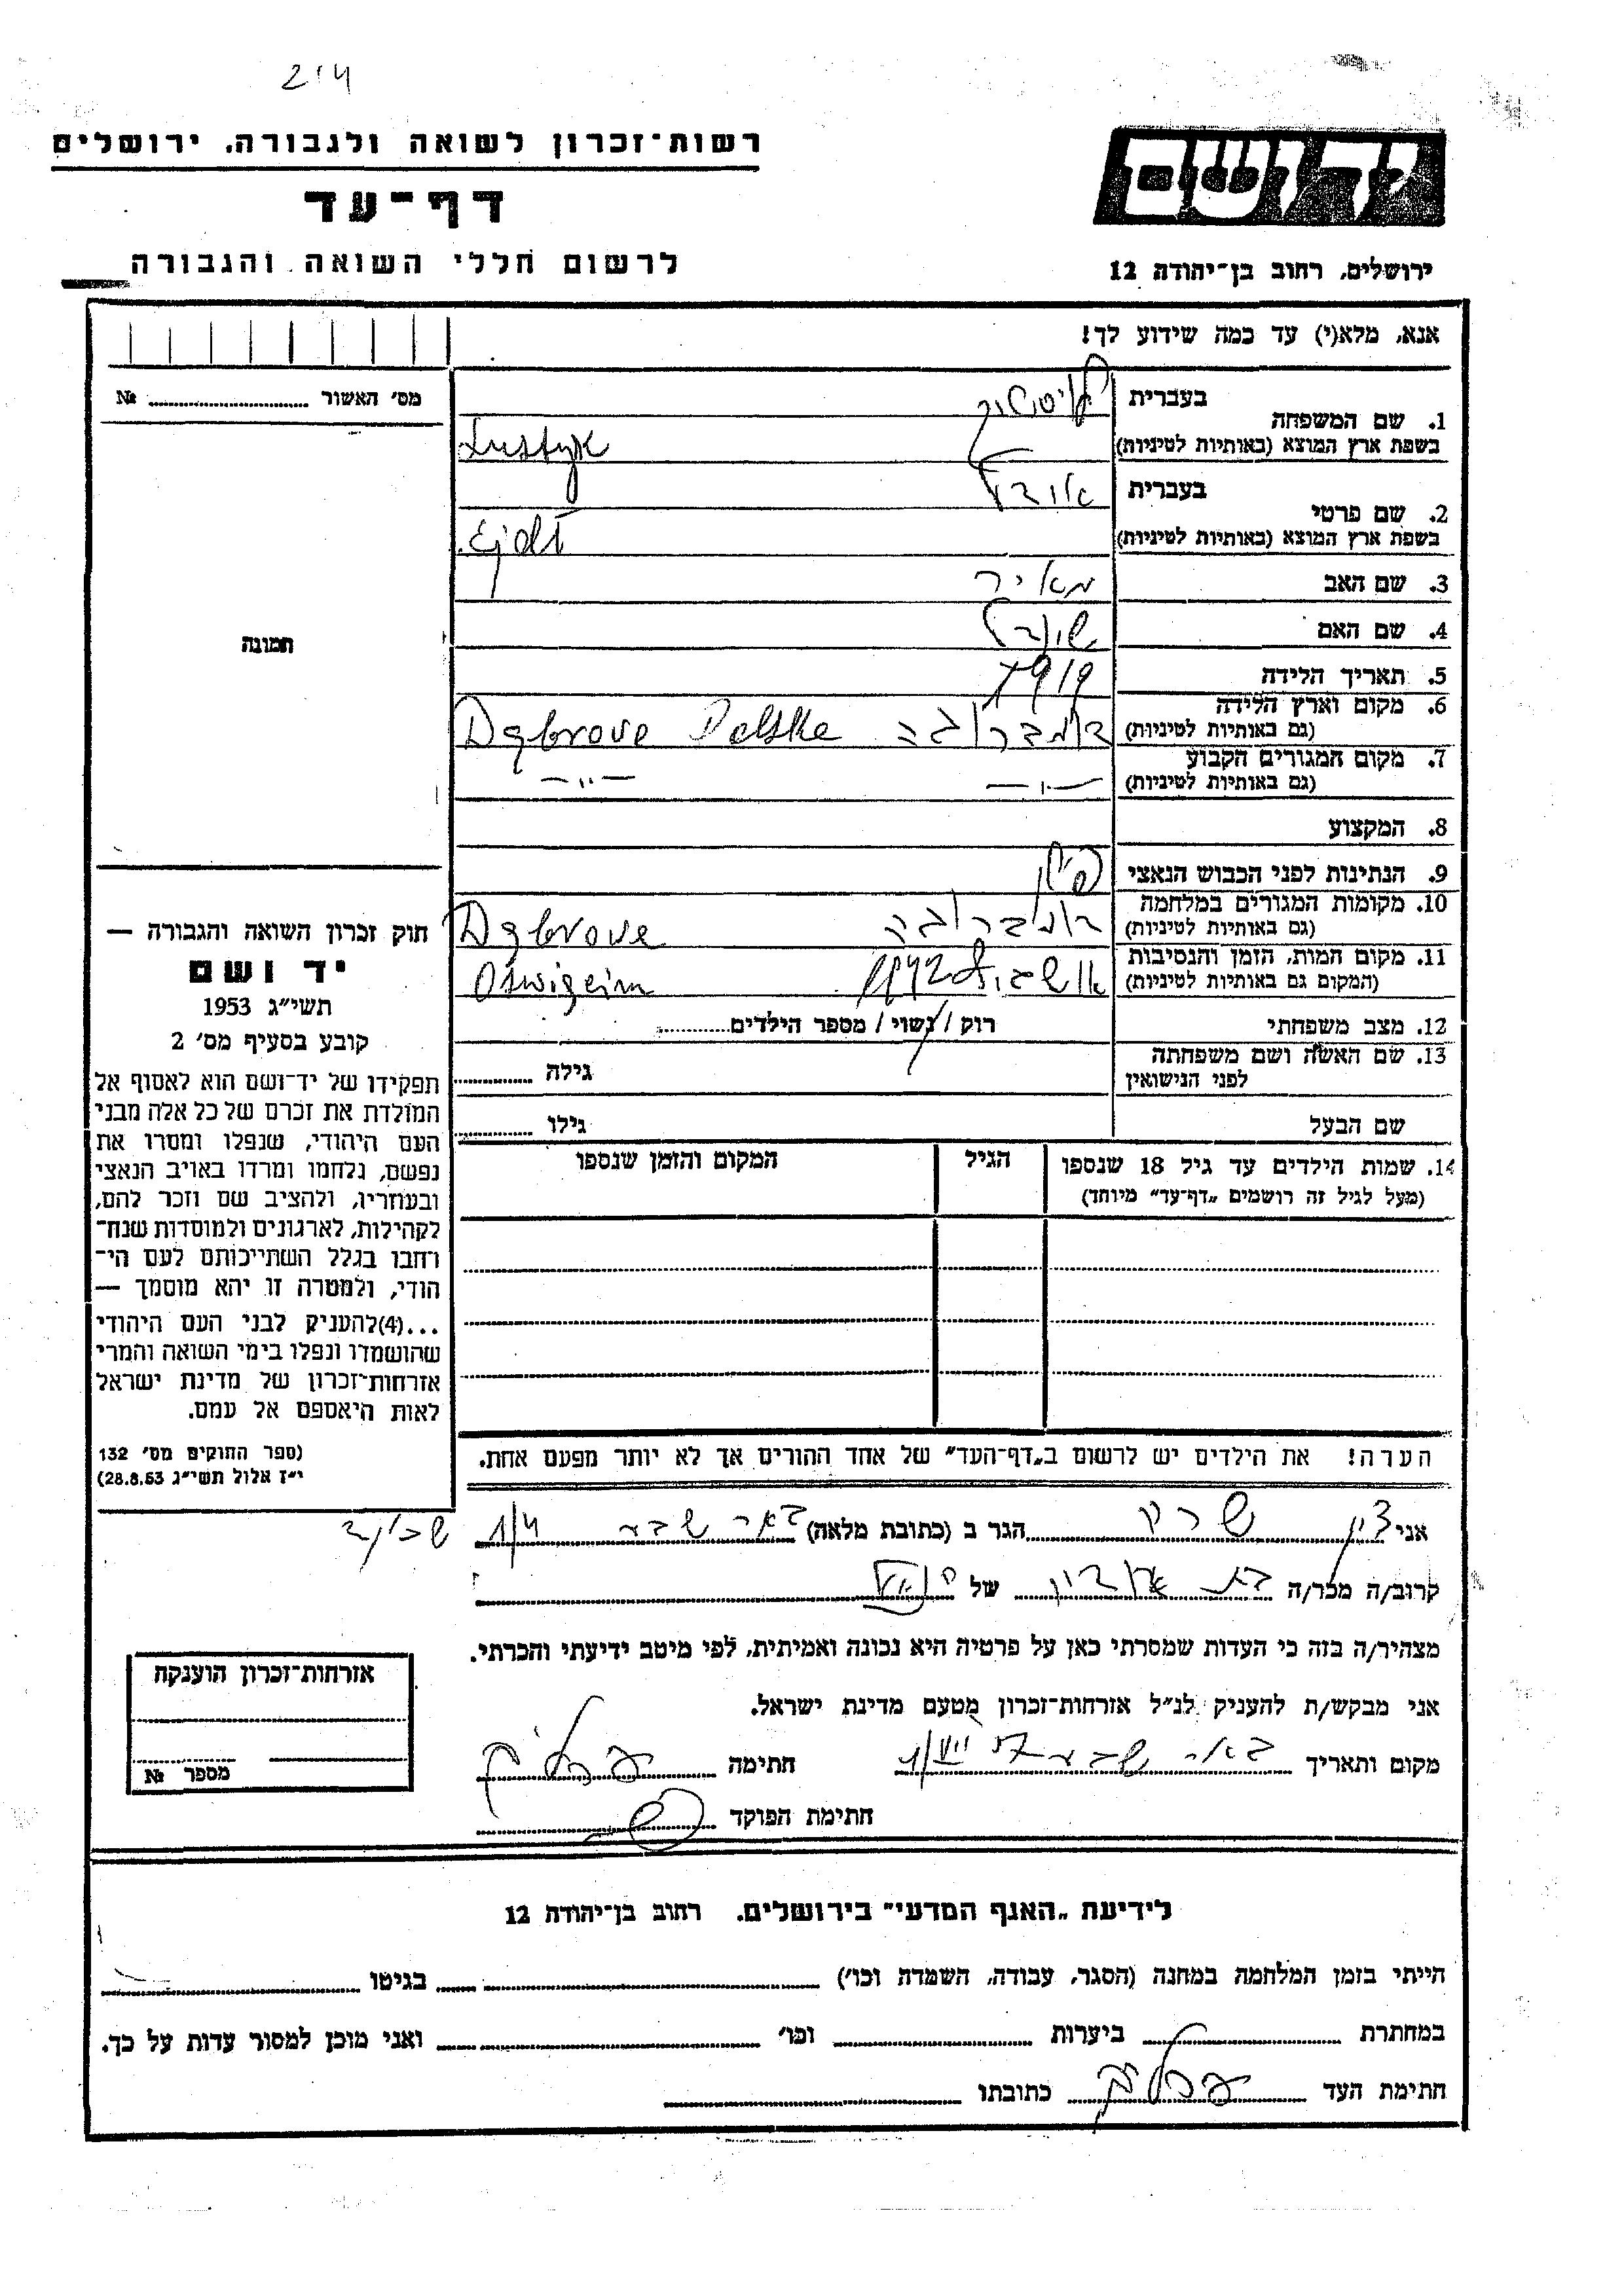 רשות־זכרון לשואה ולגבורה. ירושלים
יד ושם
דף־עד
לרשום חללי השואה והגבורה
ירושלים, רחוב בן־יהודה 12
אנא, מלא(י) עד כמה שידוע לך!
מס׳ האשור № 
1. שם המשפחה בעברית
בשפת ארץ המוצא (באותיות לטיניות) Lustyk
2. שם פרטי בעברית
בשפת ארץ המוצא (באותיות לטיניות) Ejdl
3. שם האב מאיר
4. שם האם
5. תאריך הלידה 1919
6. מקום וארץ הלידה
(גם באותיות לטיניות) דומברובה Dąbrove Polske
7. מקום המגורים הקבוע
(גם באותיות לטיניות) —״— —״—
8. המקצוע
9. הנתינות לפני הכבוש הנאצי
10. מקומות המגורים במלחמה
(גם באותיות לטיניות) דומברובה Dąbrove
11. מקום המות, הזמן והנסיבות
(המקום גם באותיות לטיניות) 1942 Oswięcim
12. מצב משפחתי רוק / נשוי / מספר הילדים
13. שם האשה ושם משפחתה
לפני הנישואין גילה
שם הבעל גילו
14. שמות הילדים עד גיל 18 שנספו הגיל המקום והזמן שנספו
(מעל לגיל זה רושמים „דף־עד״ מיוחד)
הערה! את הילדים יש לרשום ב„דף־העד״ של אחד ההורים אך לא יותר מפעם אחת.
תמונה
חוק זכרון השואה והגבורה —
יד ושם
תשי״ג 1953
קובע בסעיף מס׳ 2
תפקידו של יד־ושם הוא לאסוף אל
המולדת את זכרם של כל אלה מבני
העם היהודי, שנפלו ומסרו את
נפשם, נלחמו ומרדו באויב הנאצי
ובעוזריו, ולהציב שם וזכר להם,
לקהילות, לארגונים ולמוסדות שנח־
רחבו בגלל השתייכותם לעם הי־
הודי, ולמטרה זו יהא מוסמך —
...(4)להעניק לבני העם היהודי
שהושמדו ונפלו בימי השואה והמרי
אזרחות־זכרון של מדינת ישראל
לאות היאספם אל עמם.
(ספר החוקים מס׳ 132
י״ז אלול תשי״ג 28.8.53)
אני שרק הגר ב (כתובת מלאה) באר שבע
קרוב/ה מכר/ה של
מצהיר/ה בזה כי העדות שמסרתי כאן על פרטיה היא נכונה ואמיתית, לפי מיטב ידיעתי והכרתי.
אני מבקש/ת להעניק לנ״ל אזרחות־זכרון מטעם מדינת ישראל.
מקום ותאריך באר שבע חתימה
חתימת הפוקד
אזרחות־זכרון הוענקה
מספר №
לידיעת „האגף המדעי״ בירושלים. רחוב בן־יהודה 12
הייתי בזמן המלחמה במחנה (הסגר, עבודה, השמדה וכו׳) בגיטו
במחתרת ביערות וכו׳ ואני מוכן למסור עדות על כך.
חתימת העד כתובתו